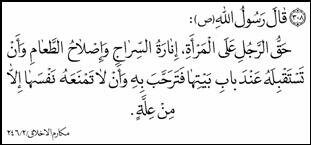 (٣٠٨) قَالَ رَسُولُ اللّٰهِ (ص):
حَقُّ الرَّجُلِ عَلَى الْمَرْأَةِ. إِنَارَةُ السِّرَاجِ وَإِصْلَاحُ الطَّعَامِ وَأَنْ
تَسْتَقْبِلَهُ عِنْدَ بَابِ بَيْتِهَا فَتَرَحَّبَ بِهِ وَأَنْ لَا تَمْنَعَهُ نَفْسَهَا إِلَّا
مِنْ عِلَّةٍ.
مكارم الاخلاق ٢٤٦/٢